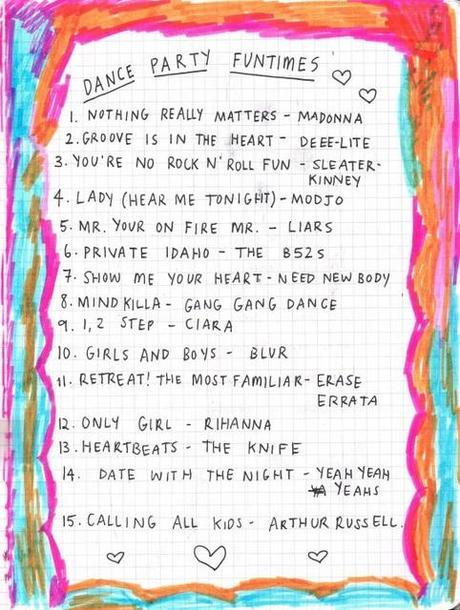 DANCE PARTY FUNTIMES
1. NOTHING REALLY MATTERS - MADONNA
2. GROOVE IS IN THE HEART - DEEE-LITE
3. YOU'RE NO ROCK N' ROLL FUN - SLEATER-
KINNEY
4. LADY (HEAR ME TONIGHT) - MODJO
5. MR. YOUR ON FIRE MR. - LIARS
6. PRIVATE IDAHO - THE B52S
7. SHOW ME YOUR HEART - NEED NEW BODY
8. MINDKILLA - GANG GANG DANCE
9. 1, 2 STEP - CIARA
10. GIRLS AND BOYS - BLUR
11. RETREAT! THE MOST FAMILIAR - ERASE
ERRATA
12. ONLY GIRL - RIHANNA
13. HEARTBEATS - THE KNIFE
14. DATE WITH THE NIGHT - YEAH YEAH
YEAHS
15. CALLING ALL KIDS - ARTHUR RUSSELL.